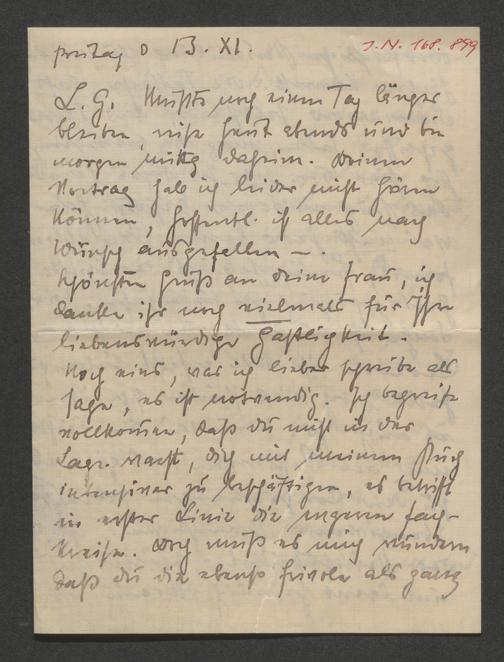 Freitag D 13. XI.
J.N. 168.899
L. G. Mußte noch einen Tag länger
bleiben, reise heut abends und bin
morgen mittg daheim. Deinen
Vortrag hab ich leider nicht hören
können, hoffentl. ist alles nach
Wunsch ausgefallen –.
Schönsten Gruß an deine Frau, ich
danke ihr noch vielmals für Ihre
liebenswürdige Gastlichkeit.
Noch eins, was ich lieber schreibe als
sage, es ist notwendig. Ich begreife
vollkommen, daß du nicht in der
Lage warst, dich mit meinem Buch
intensiver zu beschäftigen, es betrifft
in erster Linie die engeren Fach-
kreise. Doch muß es mich wundern
daß du die ebenso frivole als ganz